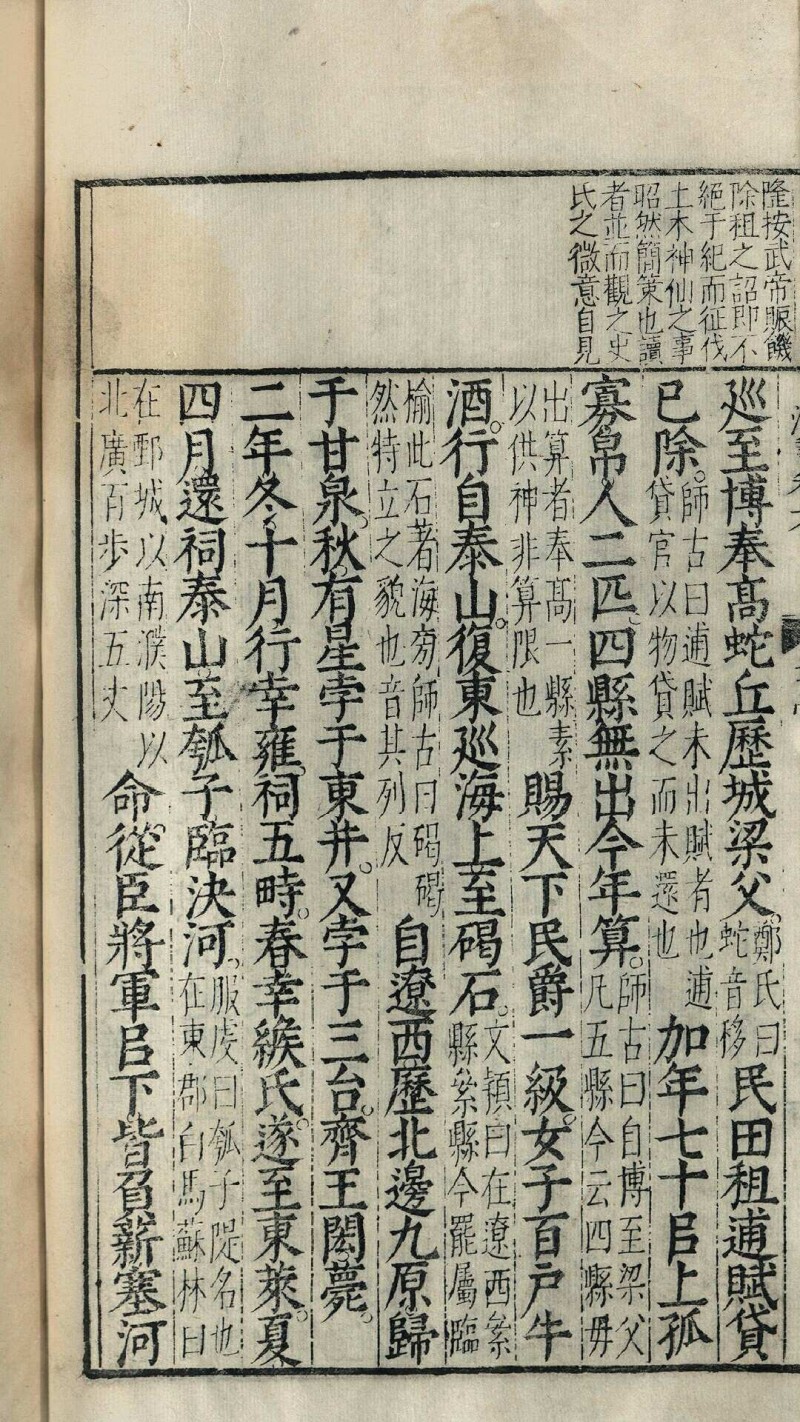 隆按武帝賑饑
除租之詔即不
絕于紀而征伐
土木神仙之事
昭然簡策也讀
者並而觀之史
氏之微意自見
巡至博奉高蛇丘歷城梁父鄭氏曰蛇音移民田租逋賦貸
已除師古曰逋賦未出賦者也逋貸官以物貸之而未還也加年七十㠯上孤
寡帛人二匹四縣無出今年算師古曰自博至梁父凡五縣今云四縣毋
出算者奉高一縣素以供神非算限也賜天下民爵一級女子百戶牛
酒行自泰山復東巡海上至碣石文穎曰在遼西絫縣絫縣今罷屬臨
榆此石著海旁師古曰碣碣然特立之貌也音其列反自遼西歷北邊九原歸
于甘泉秋有星孛于東井又孛于三台齊王閎薨
二年冬十月行幸雍祠五畤春幸緱氏遂至東萊夏
四月還祠泰山至瓠子臨決河服虔曰瓠子隄名也在東郡白馬蘇林曰
在鄄城以南濮陽以北廣百步深五丈命從臣將軍㠯下皆負薪塞河